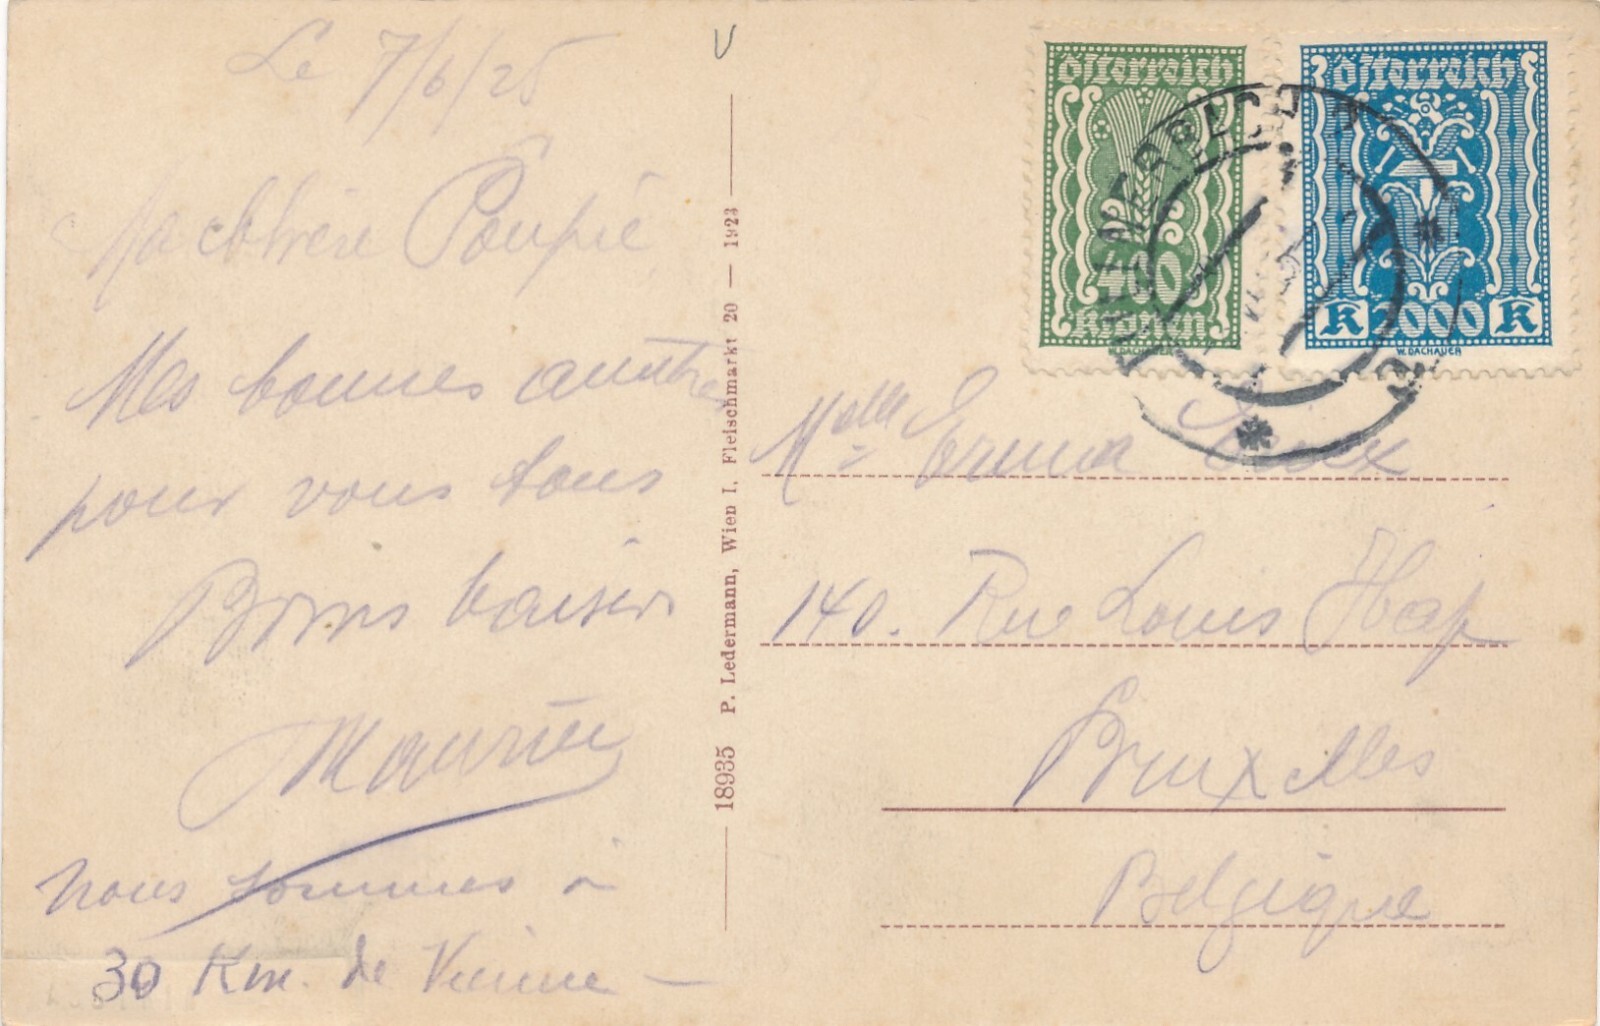 Le 7/6/25
Ma chère Poupée
Mes bonnes
pour vous tous
Bons baisers
Maurice
Nous sommes à
30 Km. de Vienne —
V
18935 P. Ledermann, Wien I. Fleischmarkt 20 — 1923
österreich
400
kronen
W. DACHAUER
österreich
K 2000 K
W. DACHAUER
Melle Emma
140. Rue Louis Hap
Bruxelles
Belgique